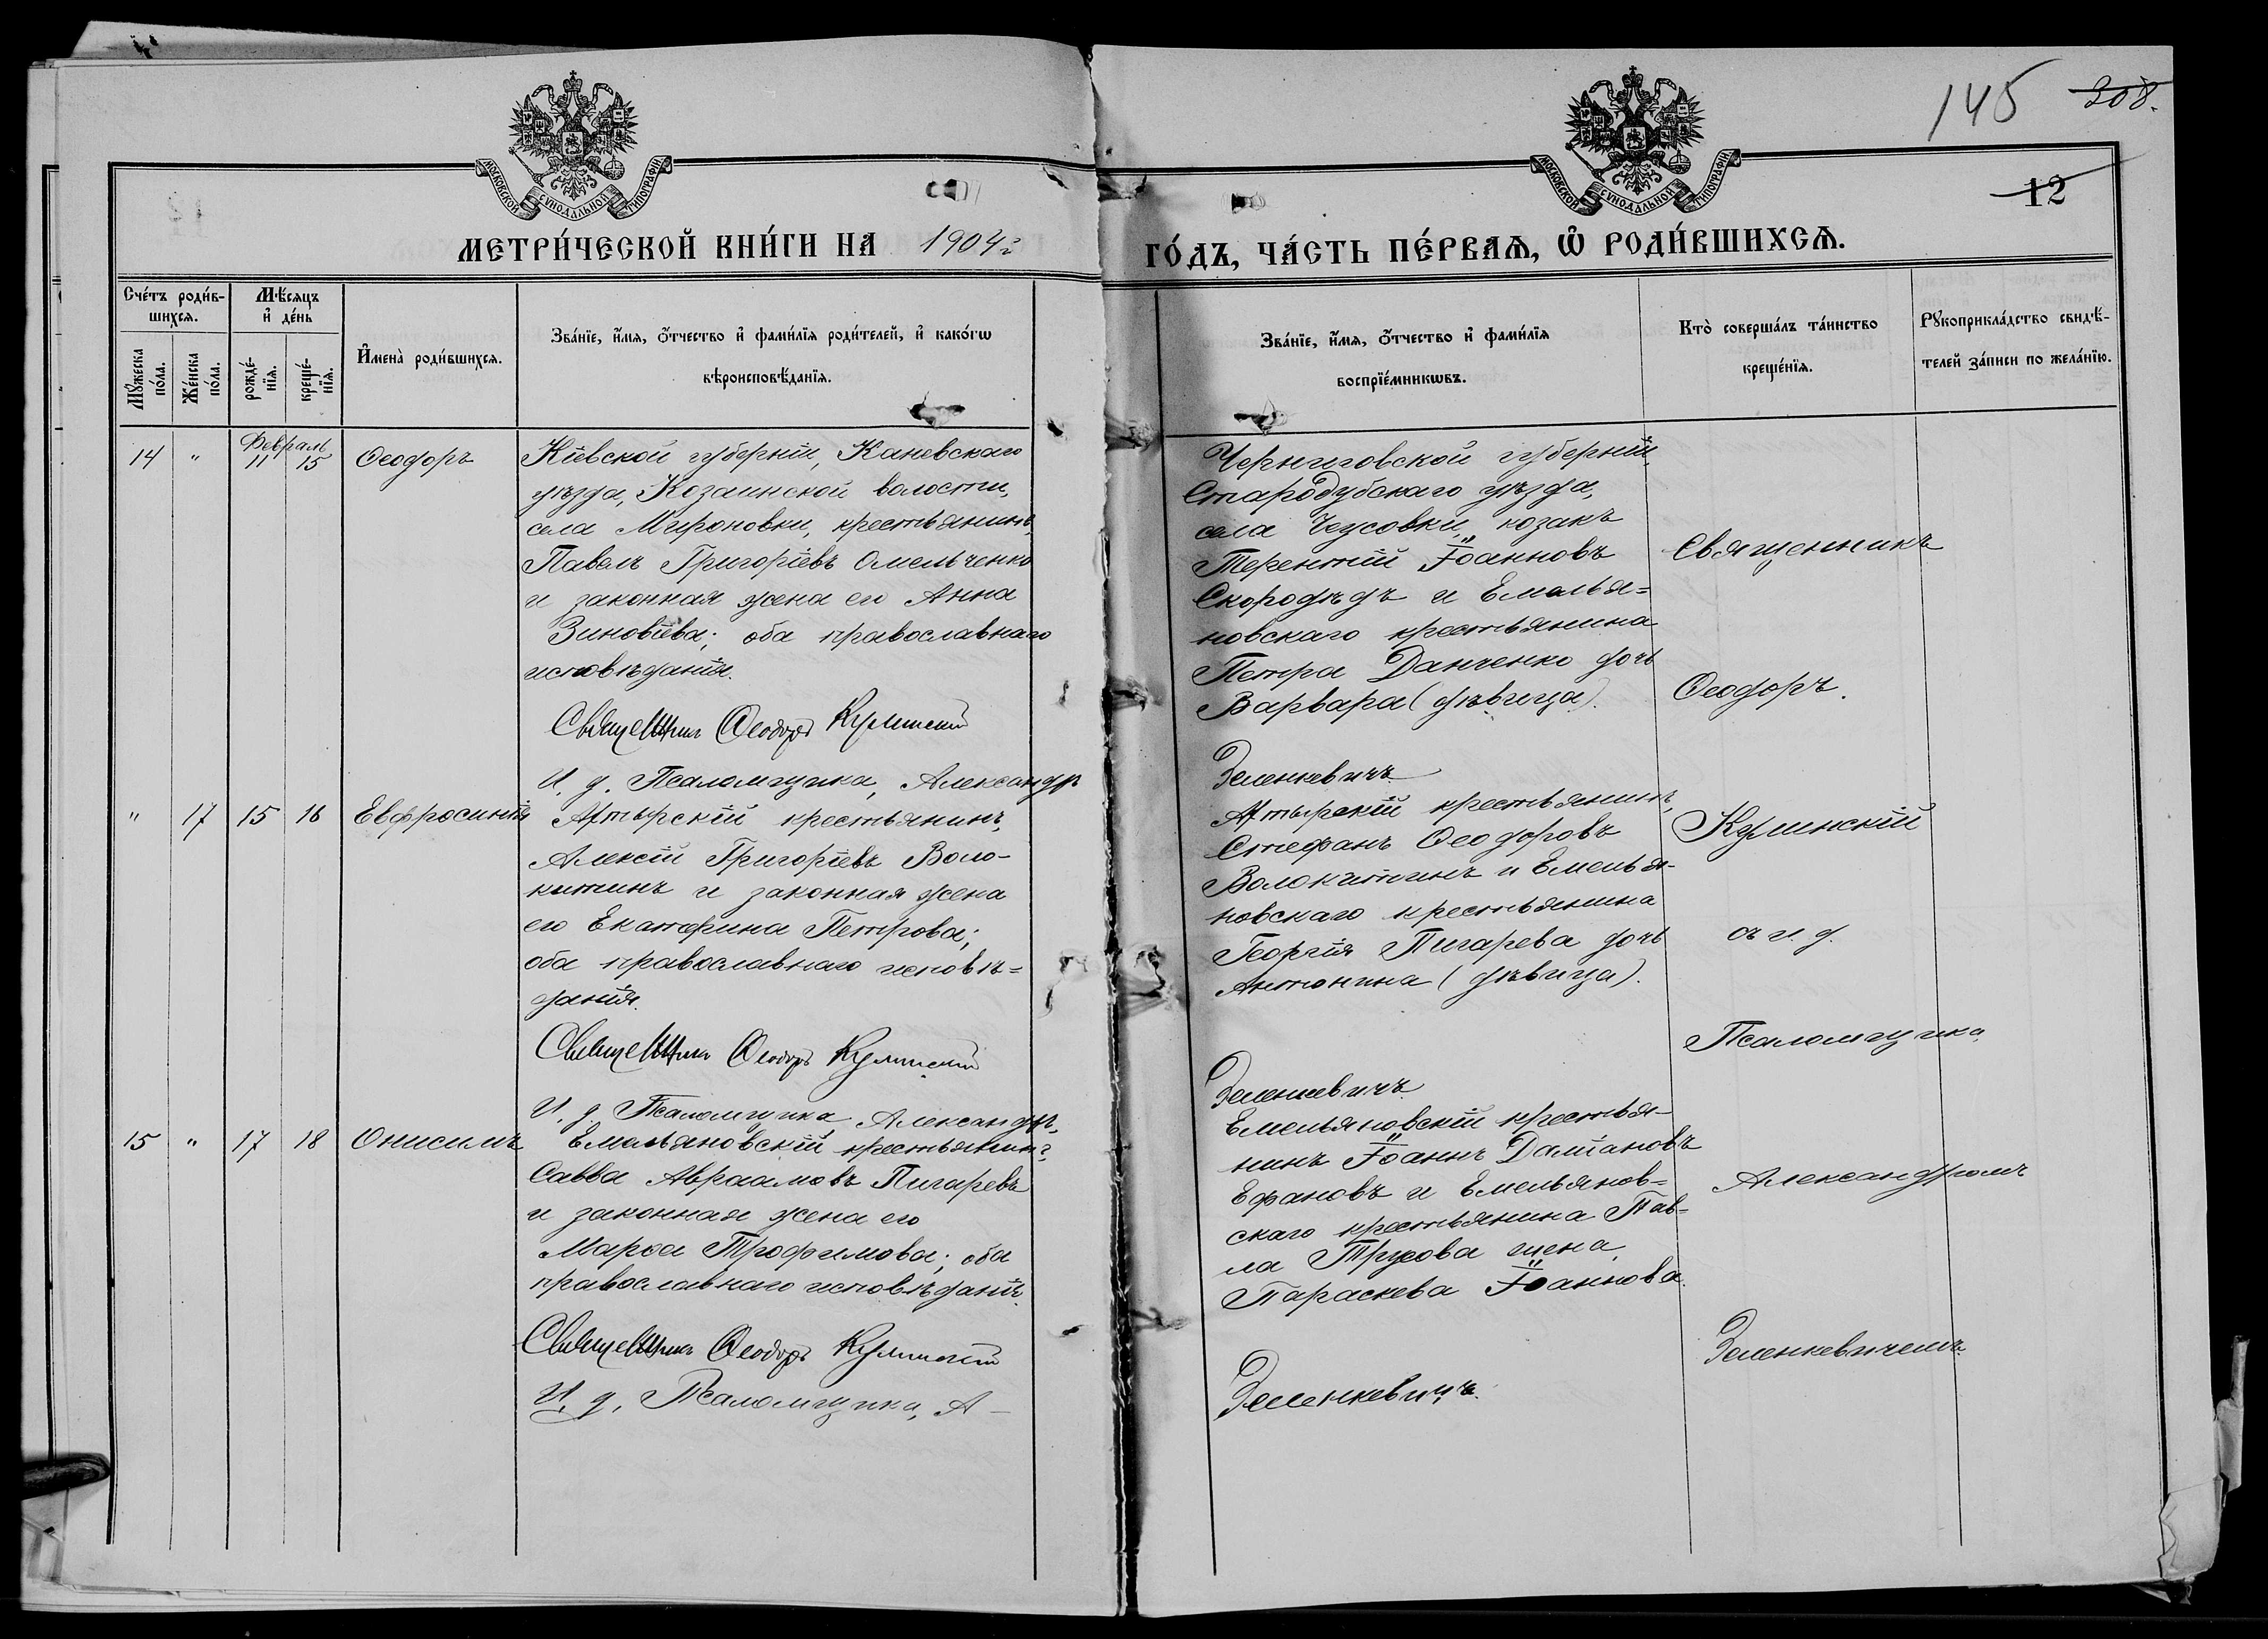 145 208.
МОСКОВСКОЙ СѴНОДАЛЬНОЙ ТИПОГРАФІИ
МОСКОВСКОЙ СѴНОДАЛЬНОЙ ТИПОГРАФІИ
12
МЕТРИ́ЧЕСКОЙ КНИ́ГИ НА 1904 г.
ГО́ДЪ, ЧА́СТЬ ПЕ́РВАѦ, Ѡ҆ РОДИ́ВШИХСѦ.
Сче́тъ роди́в-
шихсѧ.
Мꙋ́жеска
по́ла.
Же́нска
по́ла.
Мѣ́сѧцъ
и҆ де́нь
рожде́-
нїѧ.
креще́-
нїѧ.
И҆мена̀ роди́вшихсѧ.
Зва́нїе, и҆́мѧ, о҆́тчество и҆ фами́лїѧ роди́телей, и҆ како́гѡ
вѣроисповѣ́данїѧ.
Зва́нїе, и҆́мѧ, о҆́тчество и҆ фами́лїѧ
воспрїе́мникѡвъ.
Кто̀ соверша́лъ та́инство
креще́нїѧ.
Рꙋкоприкла́дство свидѣ́-
телей за́писи по жела́нїю.
Февраль
14 " 11 15 Ѳеодоръ
Кіевской губерніи, Каневскаго
уѣзда, Козаинской волости,
села Мироновки, крестьянинъ,
Павелъ Григоріевъ Омельченко
и законная жена его Анна
Зиновіева; оба православнаго
исповѣданія.
Священникъ Ѳеодоръ Кулинскій
И. д. Псаломщика, Александръ
Черниговской губерніи,
Стародубскаго уѣзда,
села Чеусовки, козакъ
Терентій Іоанновъ
Скородѣдъ и Емелья=
новскаго крестьянина
Петра Данченко дочь
Варвара (дѣвица).
Зеленкевичъ
" 17 15 16 Евфросинія
Артырскій крестьянинъ,
Алексій Григоріевъ Воло-
китинъ и законная жена
его Екатерина Петрова;
оба православнаго исповѣ=
данія.
Священникъ Ѳеодоръ Кулинскій
И. д. Псаломщика Александръ,
Артырскій крестьянинъ,
Стефанъ Ѳеодоровъ
Волокитинъ и Емелья-
новскаго крестьянина
Георгія Пигарева дочь
Антонина (дѣвица).
Зеленкевичъ
15 " 17 18 Онисимъ
Емельяновскій крестьянинъ,
Савва Авраамовъ Пигаревъ
и законная жена его
Марѳа Трофимова; оба
православнаго исповѣданія.
Священникъ Ѳеодоръ Кулинскій
И. д. Псаломщика, А-
Емельяновскій крестья-
нинъ Іоаннъ Даміановъ
Ефановъ и Емельянов=
скаго крестьянина Пав=
ла Трусова жена
Параскева Іоаннова.
Зеленкевичъ.
Священникъ
Ѳеодоръ.
Кулинскій
съ и. д.
Псаломщика
Александромъ
Зеленкевичемъ.